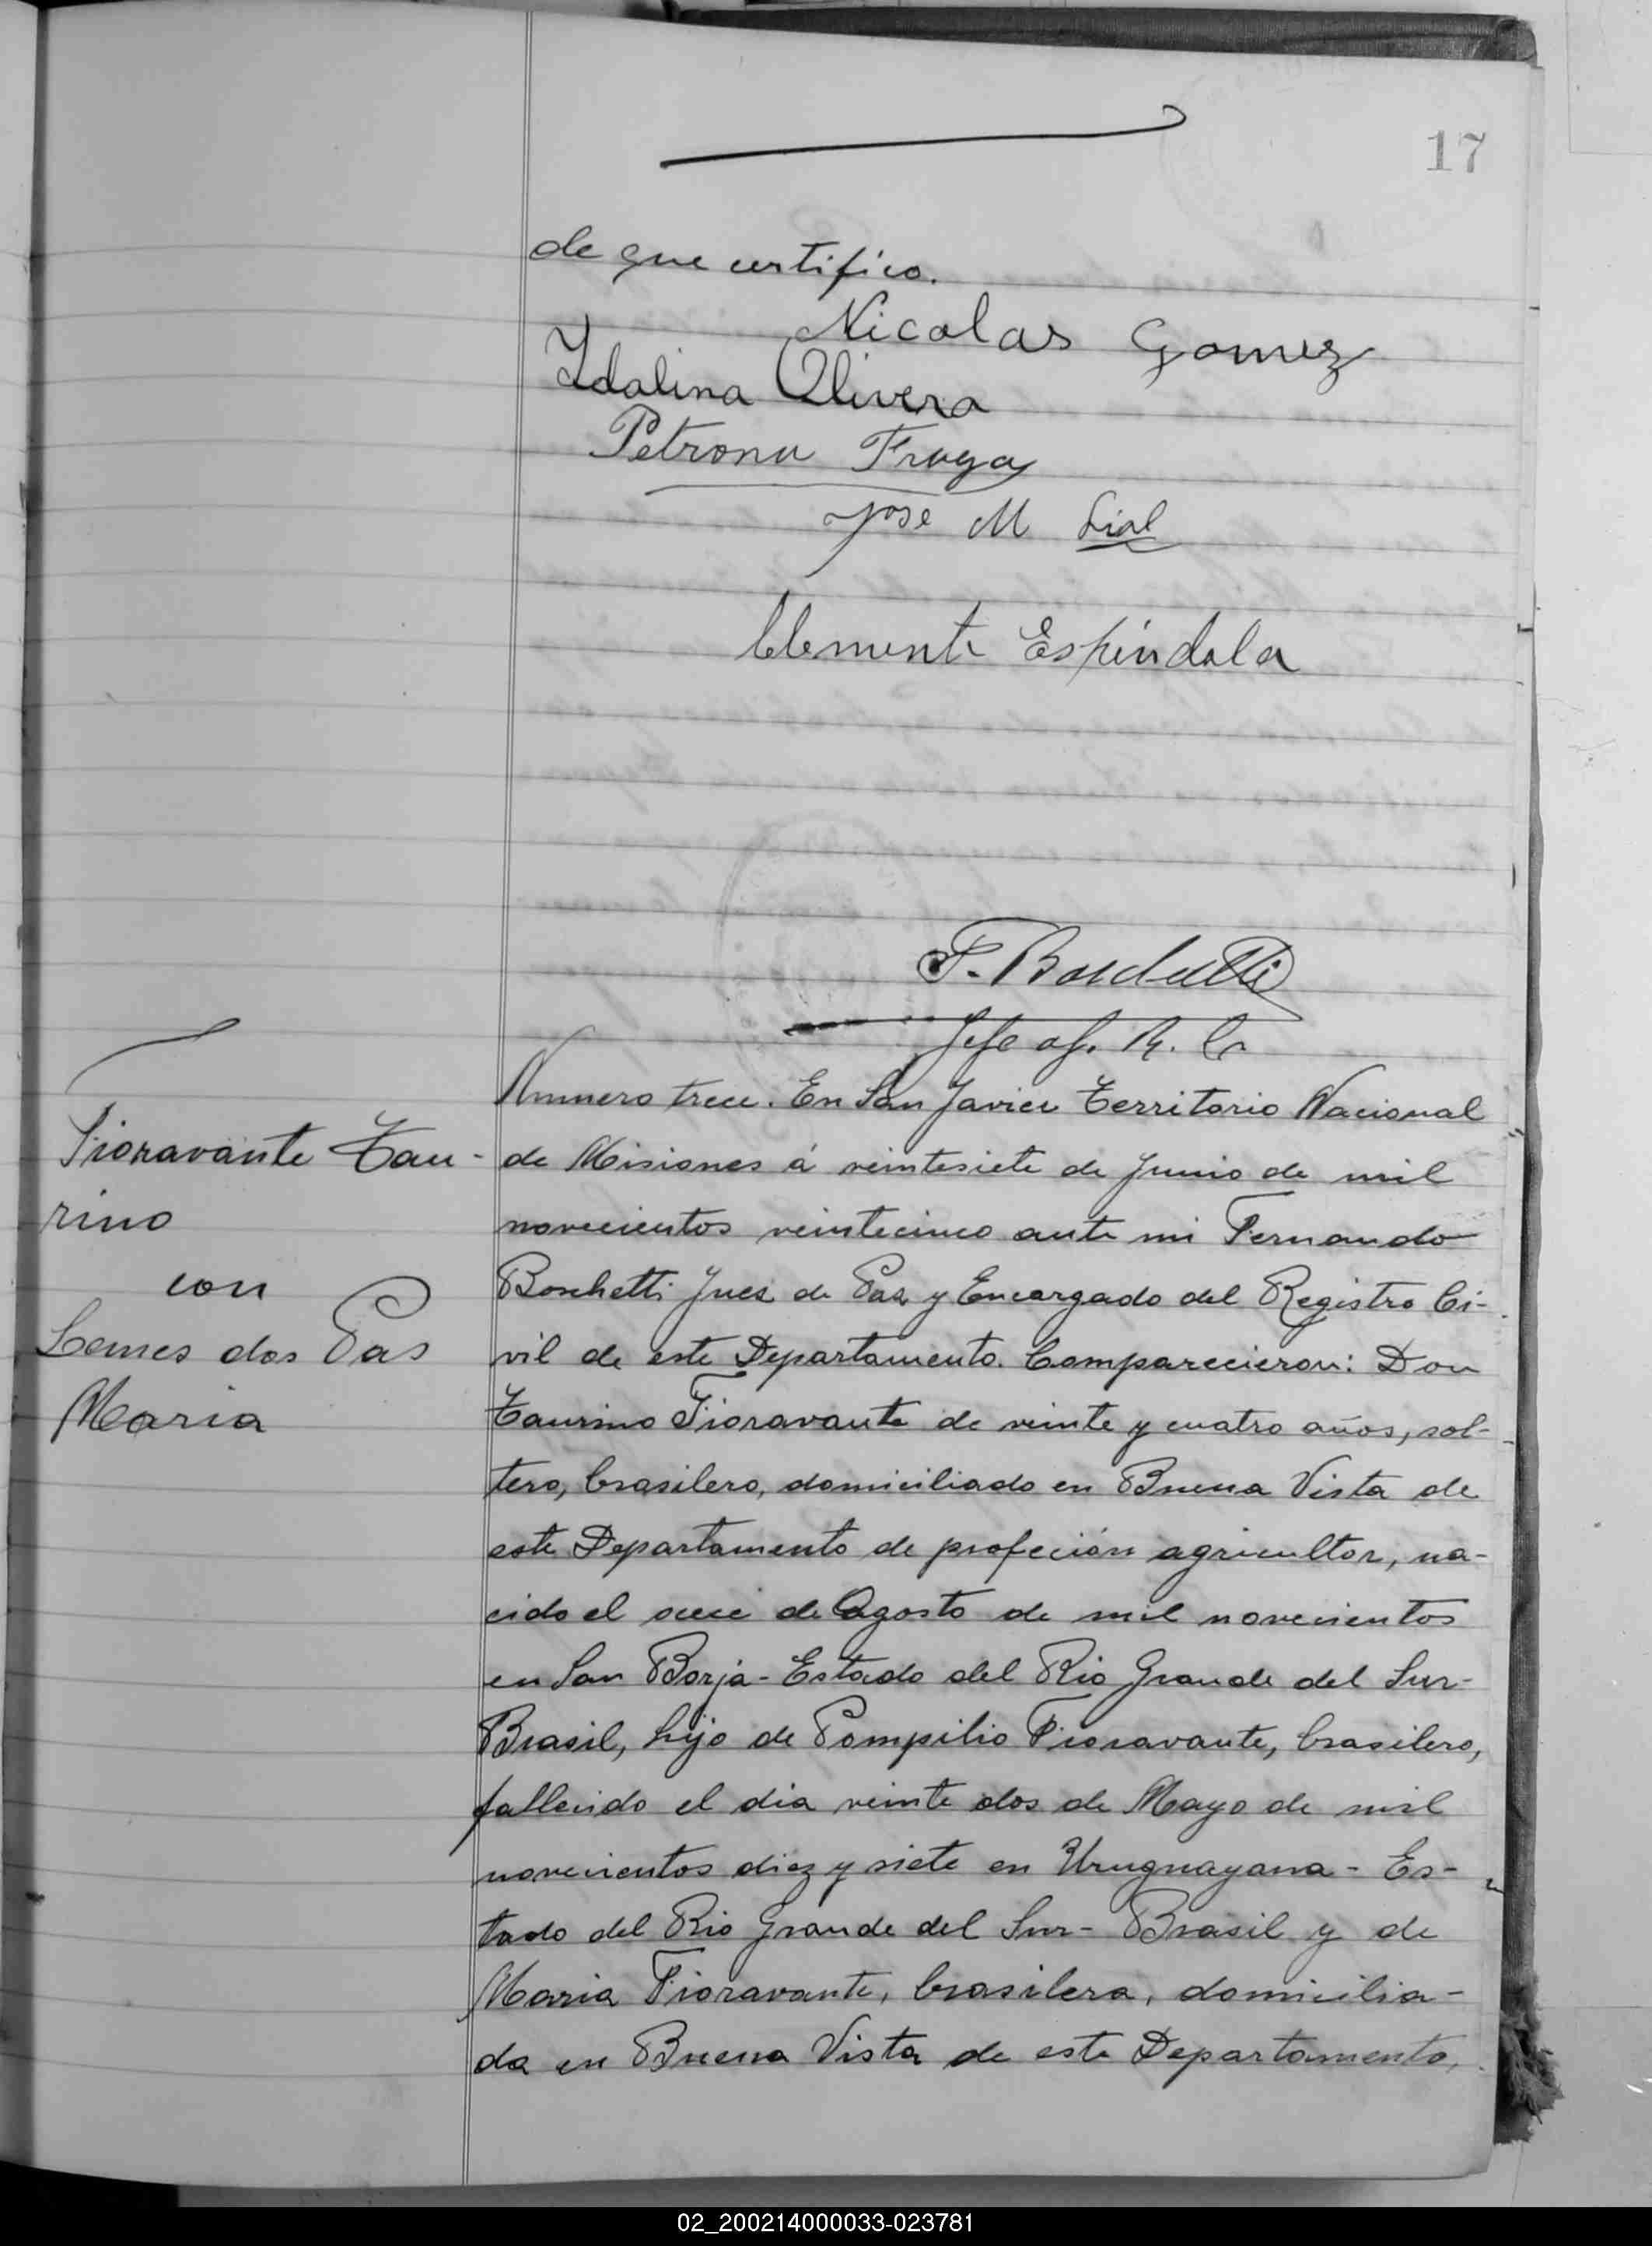 17
de que certifico.
Nicolas Gomez
Ydalina Olivera
Petrona Fraga
Jose M Lial
Clemente Espíndola
F. Boschetti
Jefe of. R. C.
Fioravante Tau-
rino
con
Lemes dos Pas
Maria
Numero trece. En San Javier Territorio Nacional
de Misiones á veintesiete de Junio de mil
novecientos veintecinco ante mi Fernando
Boschetti Juez de Paz y Encargado del Registro Ci-
vil de este Departamento. Comparecieron: Don
Taurino Fioravante de veinte y cuatro años, sol-
tero, brasilero, domiciliado en Buena Vista de
este Departamento de profeción agricultor, na-
cido el de Agosto de mil novecientos
en San Borja - Estado del Rio Grande del Sur -
Brasil, hijo de Pompilio Fioravante, brasilero,
fallecido el dia veinte dos de Mayo de mil
novecientos diez y siete en Uruguayana - Es-
tado del Rio Grande del Sur - Brasil y de
Maria Fioravante, brasilera, domicilia-
da en Buena Vista de este Departamento,
02_200214000033-023781